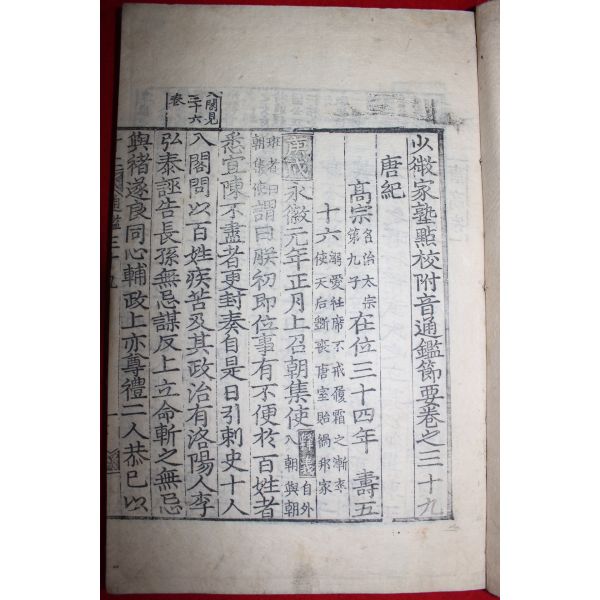 少微家塾點校附音通鑑節要卷之三十九
唐紀
高宗名治太宗第九子在位三十四年 壽五
十六溺愛衽席不戒履霜之漸率使天后斵喪唐室貽禍邦家
庚戌永徽元年正月上召朝集使自外入朝與朝
班者曰朝集使謂曰朕初即位事有不便於百姓者
悉宜陳不盡者更封奏自是日引刺史十人
入閤問以百姓疾苦及其政治有洛陽人李
弘泰誣告長孫無忌謀反上立命斬之無忌
與褚遂良同心輔政上亦尊禮二人恭己以
入閤見三十六卷
通鑑三十九